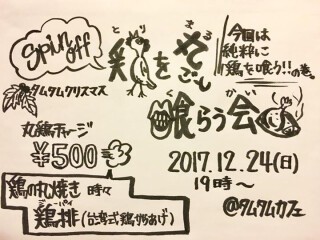 Spin off
今回は
純粋に
鶏を喰う!!の巻。
とり まる
鶏を丸ごと
タムタムクリスマス
く かい
喰らう会
丸鶏チャージ
¥500
2017.12.24(日)
19時〜
鶏の丸焼き 時々
ジーパイ
鶏排(台湾式鶏からあげ)
@タムタムカフェ